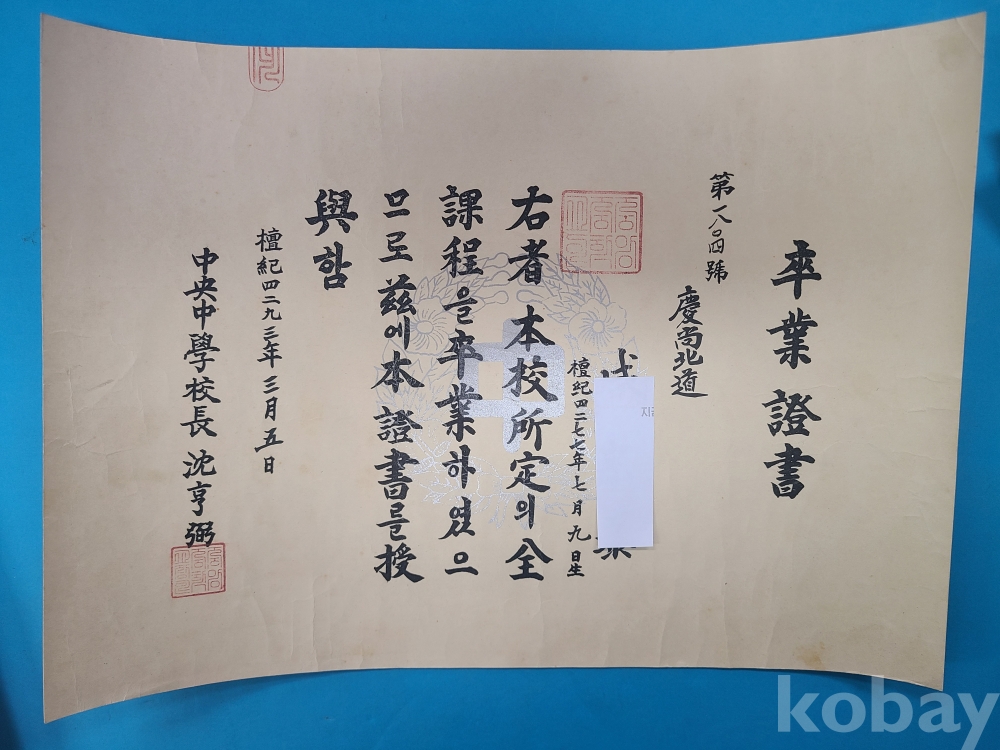 卒業證書
第一八〇四號
慶尚北道
檀紀四二七七年七月九日生
右者本校所定의全
課程을卒業하였으
므로玆에本證書를授
與함
檀紀四二九三年三月五日
中央中學校長沈亨弼
지금
kobay